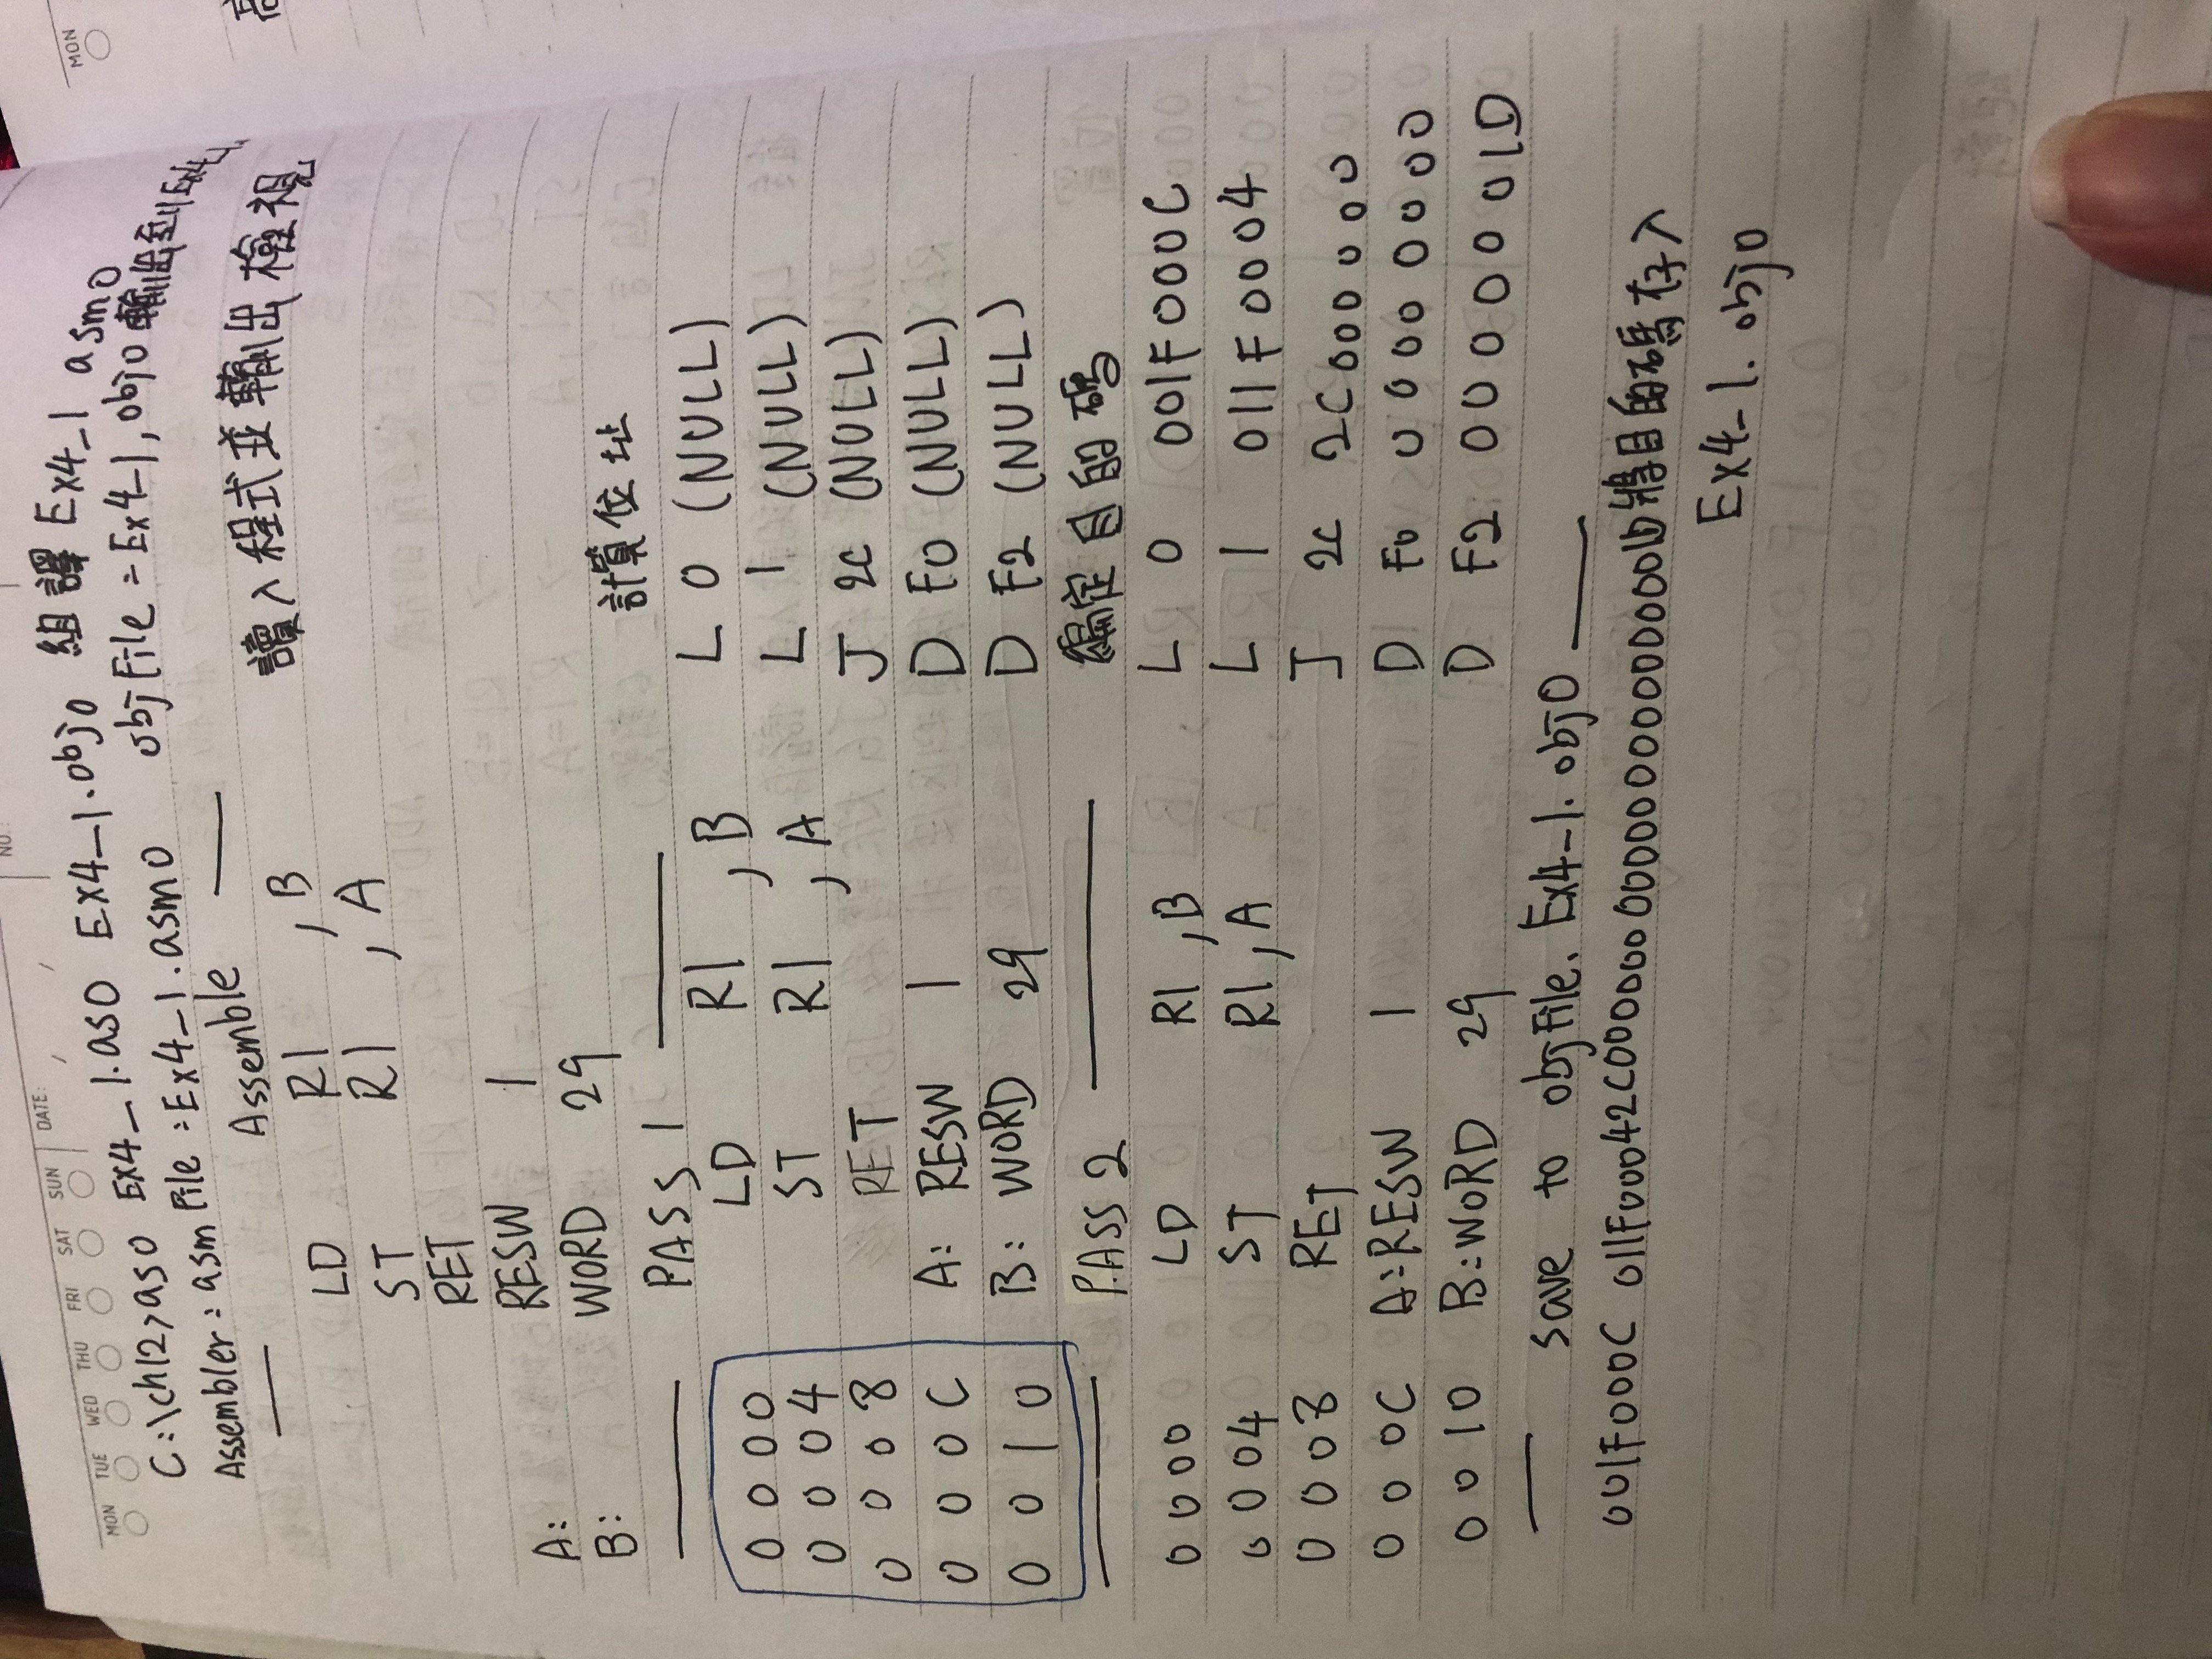 NO.:
MON TUE WED THU FRI SAT SUN DATE: / /
MON
C:\ch12>as0 EX4_1.as0 EX4_1.obj0 組譯 EX4_1 asm0
Assembler: asm File:Ex4_1.asm0 objFile=Ex4_1,obj0 輸出到Ex4_1.
Assemble
讀入程式並輸出檢視
高
LD R1 , B
ST R1 , A
RET
A: RESW 1
B: WORD 29
PASS 1 計算位址
0000 LD R1 , B L 0 (NULL)
0004 ST R1 , A L 1 (NULL)
0008 RET J 2C (NULL)
000C A: RESW 1 D F0 (NULL)
0010 B: WORD 29 D F2 (NULL)
PASS 2 編定目的碼
0000 LD R1 , B L 0 001F000C
0004 ST R1 , A L 1 011F0004
0008 RET J 2C 2C000000
000C A:RESW 1 D F0 00000000
0010 B:WORD 29 D F2 0000001D
save to objFile. Ex4_1. obj0
001F000C 011F00042C000000 000000000000001D將目的碼存入
Ex4_1. obj0